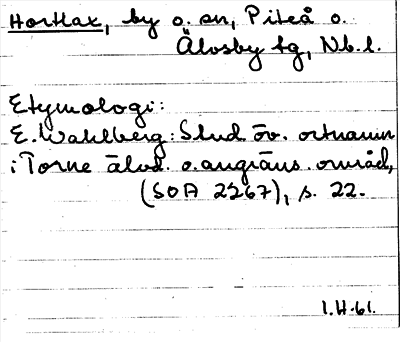 Hortlax, by o. sn, Piteå o.
Älvsby tg, Nb. l.
Etymologi:
E. Wahlberg: Stud. öv. ortnamn
i Torne älvd. o. angräns. område,
(SOA 2267), s. 22.
1.H.61.